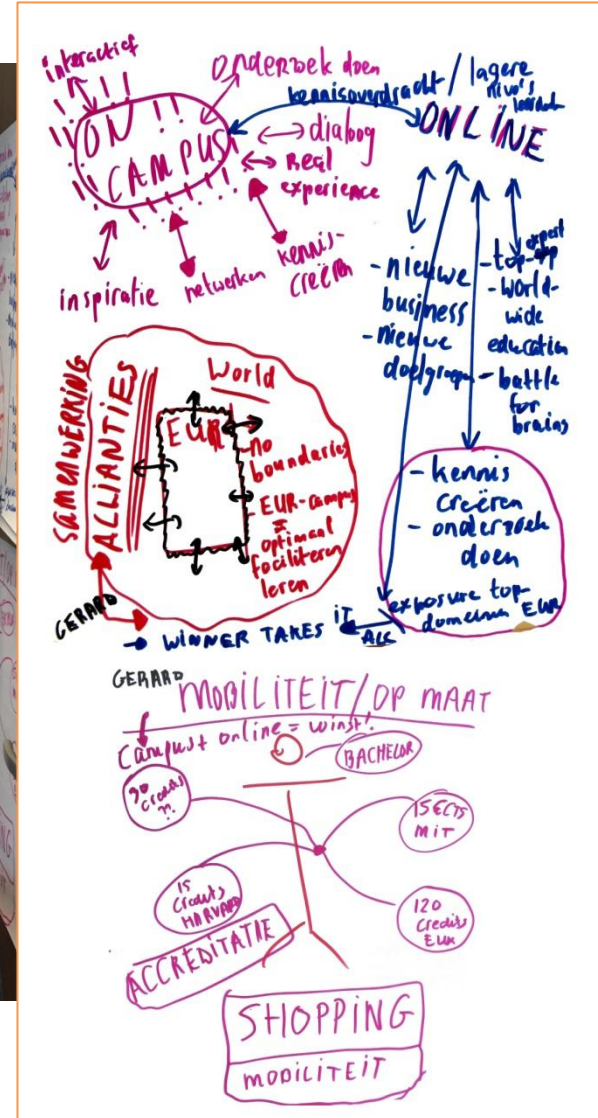 interactief
onderzoek doen
kennisoverdracht / lagere
nivo's
ON !!
CAMPUS
ONLINE
dialoog
Real
experience
inspiratie
netwerken
kennis-
creëren
- nieuwe
business
- nieuwe
doelgroepen
expert
- world-
wide
education
- battle
for
brains
SAMENWERKING
ALLIANTIES
World
EUR
- no
boundaries
- EUR-campus
=
optimaal
faciliteren
leren
- kennis
creëren
- onderzoek
doen
exposure top-
domeinen EUR
GERARD
→ WINNER TAKES iT
ALL
GERARD
MOBILITEIT/OP MAAT
Campus+ online = winst!
BACHELOR
30
credits
??
15 ECTS
MIT
15
credits
HARVARD
120
credits
EUR
ACCREDITATIE
SHOPPING
MOBILITEIT